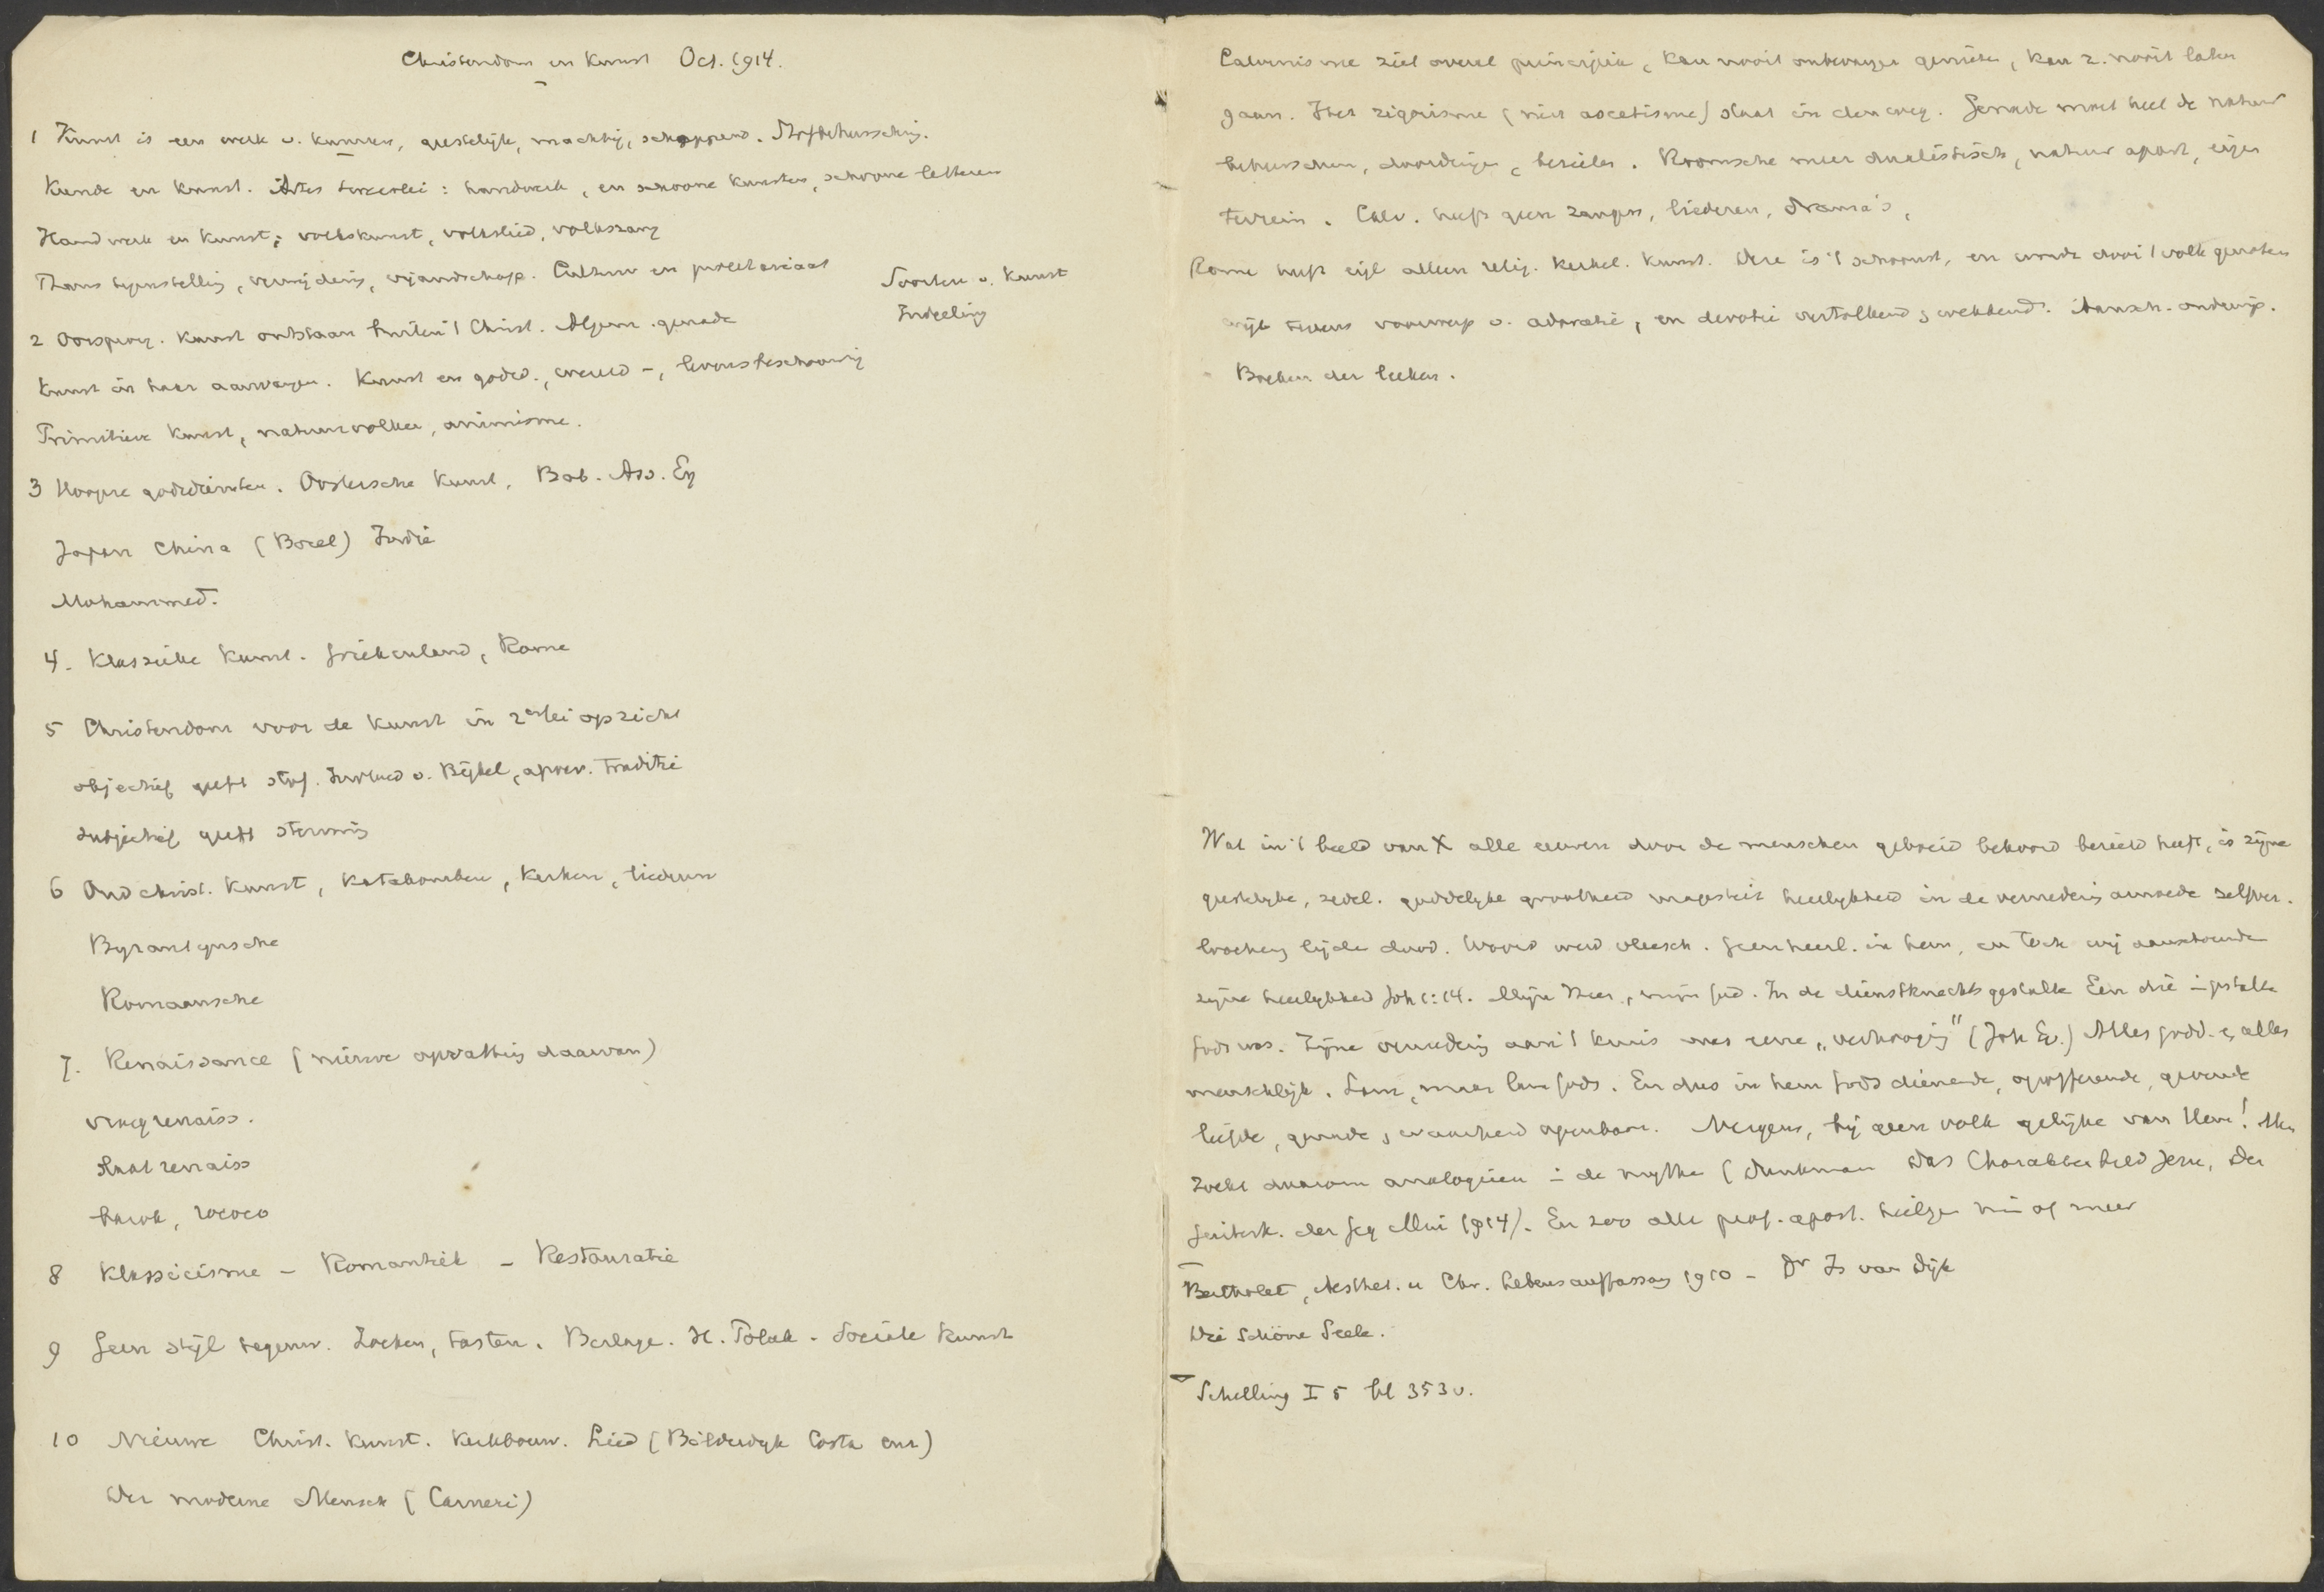 Christendom en Kunst Oct. 1914.
1 Kunst is een werk v. kunnen, geestelijk, machtig, scheppend. Stofbeheersching.
Kunde en kunst. Artes tweeerlei: handwerk, en schoone kunsten, schoone letteren
Handwerk en kunst; volkskunst, volkslied, volkszang
Thans tegenstelling, verwijdering, vijandschap. Cultuur en proletariaat
Soorten v. Kunst
Indeeling
2 Oorsprong. Kunst ontstaan buiten 't Christ. Algem. genade
Kunst in haar aanvangen. Kunst en godsd., wereld-, levensbeschouwing
Primitieve kunst, natuurvolken, animisme.
3 Hoogere godsdiensten. Oostersche Kunst, Bab. Ass. Eg
Japan China (Borel) Indië
Mohammed.
4. Klassieke Kunst. Griekenland, Rome
5 Christendom voor de kunst in 2erlei opzicht
objectief geeft stof. Invloed v. Bijbel, apocr. Traditie
subjectief geeft stemming
6 Oud christ. Kunst, Katakomben, Kerken, liederen
Byzantynsche
Romaansche
7. Renaissance (nieuwe opvatting daarvan)
vroegrenaiss.
Laat renaiss
barok, rococo
8 Klassicisme - Romantiek - Restauratie
9 Geen stijl tegenw. Zoeken, tasten. Berlage. H. Polak. Sociale Kunst
10 Nieuwe Christ. Kunst. Kerkbouw. Lied (Bilderdyk Costa enz)
Der moderne Mensch (Carneri)
Calvinisme ziet overal principiën, kan nooit onbevangen genieten, kan z. nooit laten
gaan. Het rigorisme (niet ascetisme) staat in den weg. Genade moet heel de natuur
beheerschen, doordringen, bezielen. Roomsche meer dualistisch, natuur apart, eigen
terrein. Calv. heeft geen zangen, liederen, drama's,
Rome heeft eigl alleen relig. kerkel. kunst. Deze is 't schoonst, en wordt door 't volk genoten
wijl tevens voorwerp v. adoratie, en devotie vertolkend, wekkend. Aansch. onderwijs.
Boeken der leeken.
Wat in 't beeld van X alle eeuwen door de menschen geboeid bekoord bezield heeft, is zijne
geestelyke, zedel. goddelyke grootheid majesteit heerlykheid in de vernedering armoede zelfver-
loochening lijden dood. Woord werd vleesch. Geen heerl. in hem, en toch wij aanschouwden
zijne heerlykheid Joh 1:14. Mijn Heer, mijn God. In de dienstknechtsgestalte Een die in gestalte
Gods was. Zijne vernedering aan 't kruis was eene „verhooging" (Joh Ev.) Alles godd. en alles
menschlijk. Lam, maar lam Gods. En dus in hem Gods dienende, opofferende, gevende
liefde, genade, waarheid openbaar. Nergens, bij geen volk gelijke van Hem! Men
zoekt daarom analogieën in de mythe (Dunkman Das Charakterbild Jesu, Der
Geisterk. der Geg Mai 1914). En zoo alle prof. apost. heiligen min of meer
Bertholet, Aesthet. u Chr. Lebensauffassung 1910 - Dr Is van Dijk
Die Schöne Seele.
Schelling I 5 bl 353 v.